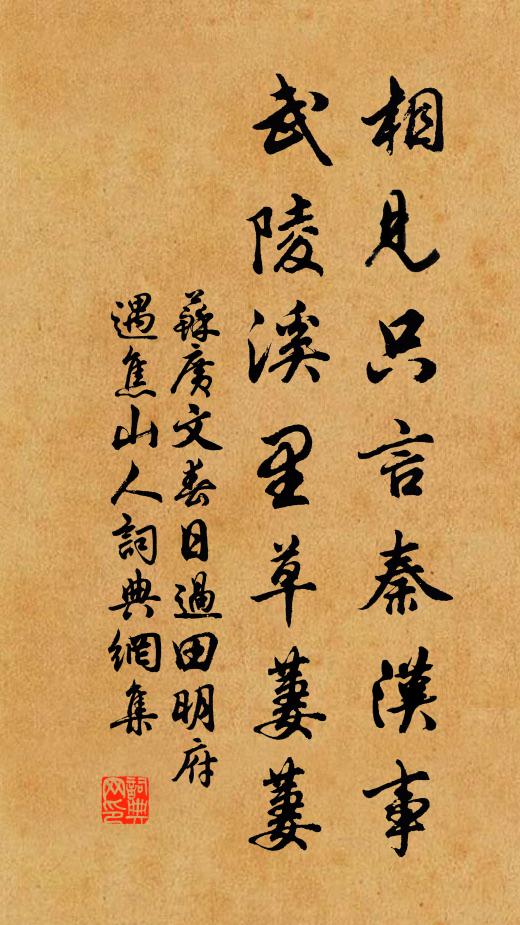 相見只言秦漢事
武陵溪里草萋萋
蘇廣文春日過田明府
遇焦山人詞典網集
詞典网印